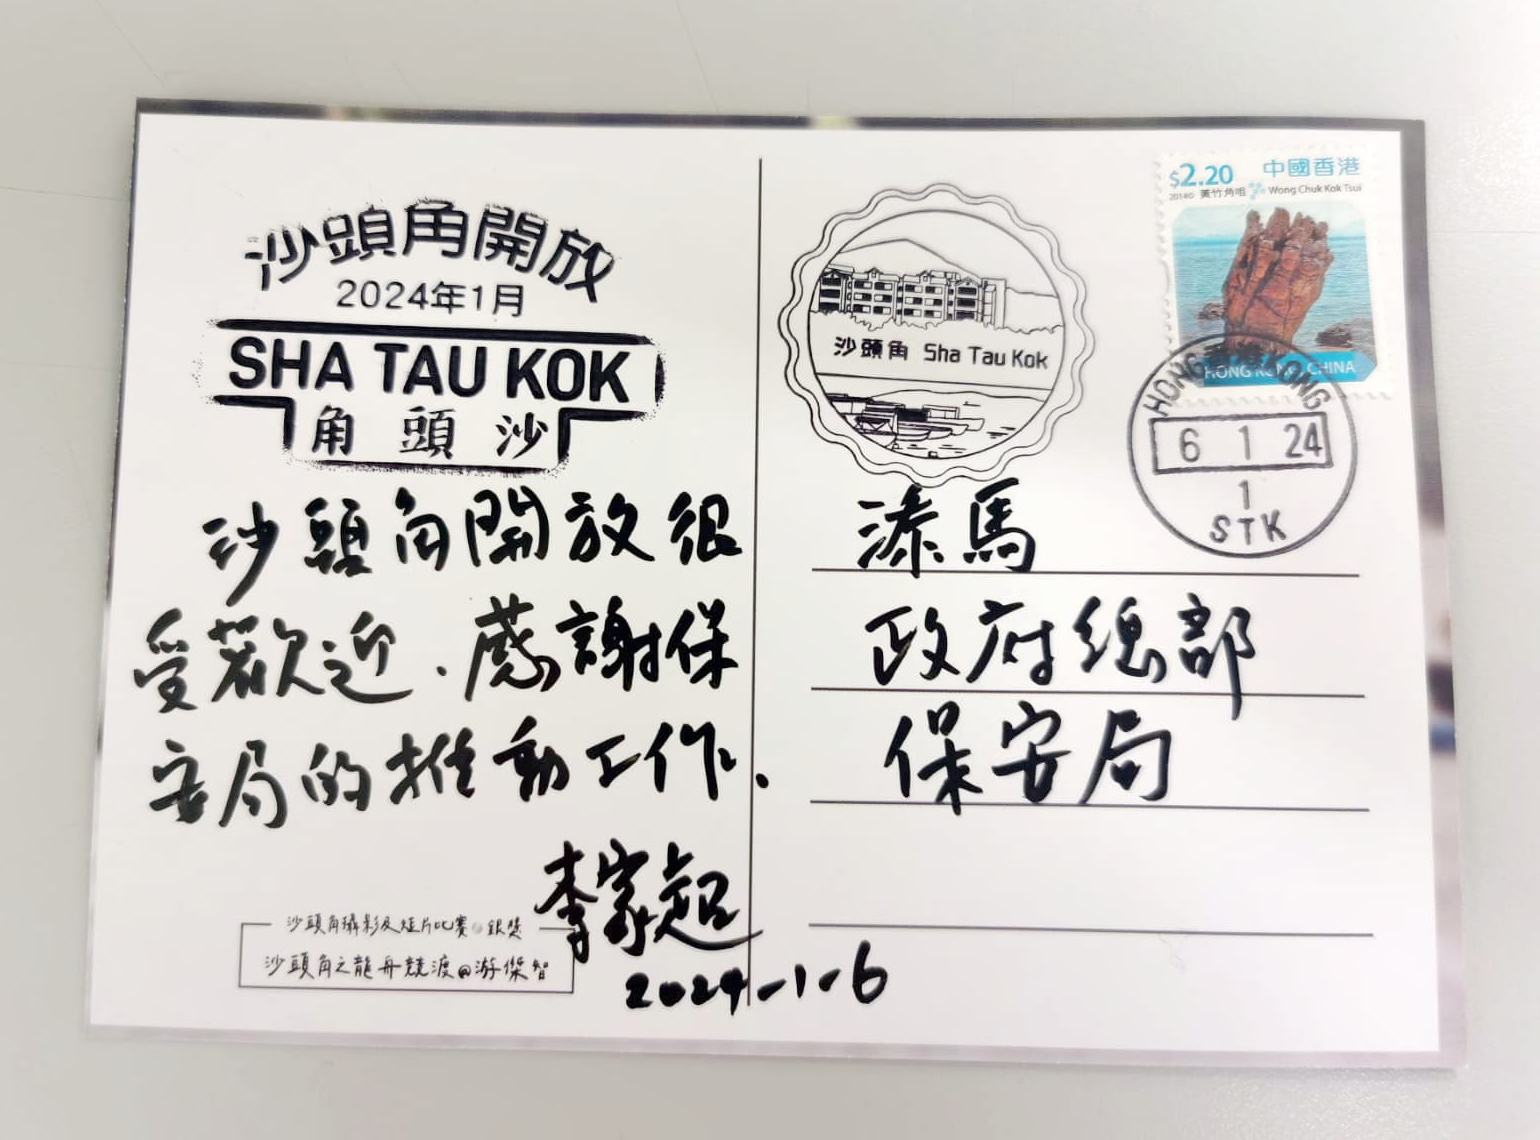 沙頭角開放
2024年1月
SHA TAU KOK
角頭沙
沙頭角開放很
受歡迎.感謝保
安局的推動工作.
李家超
2024-1-6
沙頭角攝影及短片比賽 銀獎
沙頭角之龍舟競渡@游傑智
沙頭角 Sha Tau Kok
$2.20 中國香港
2014© 黃竹角咀 Wong Chuk Kok Tsui
HONG KONG, CHINA
HONG KONG
6 1 24
1
STK
添馬
政府總部
保安局